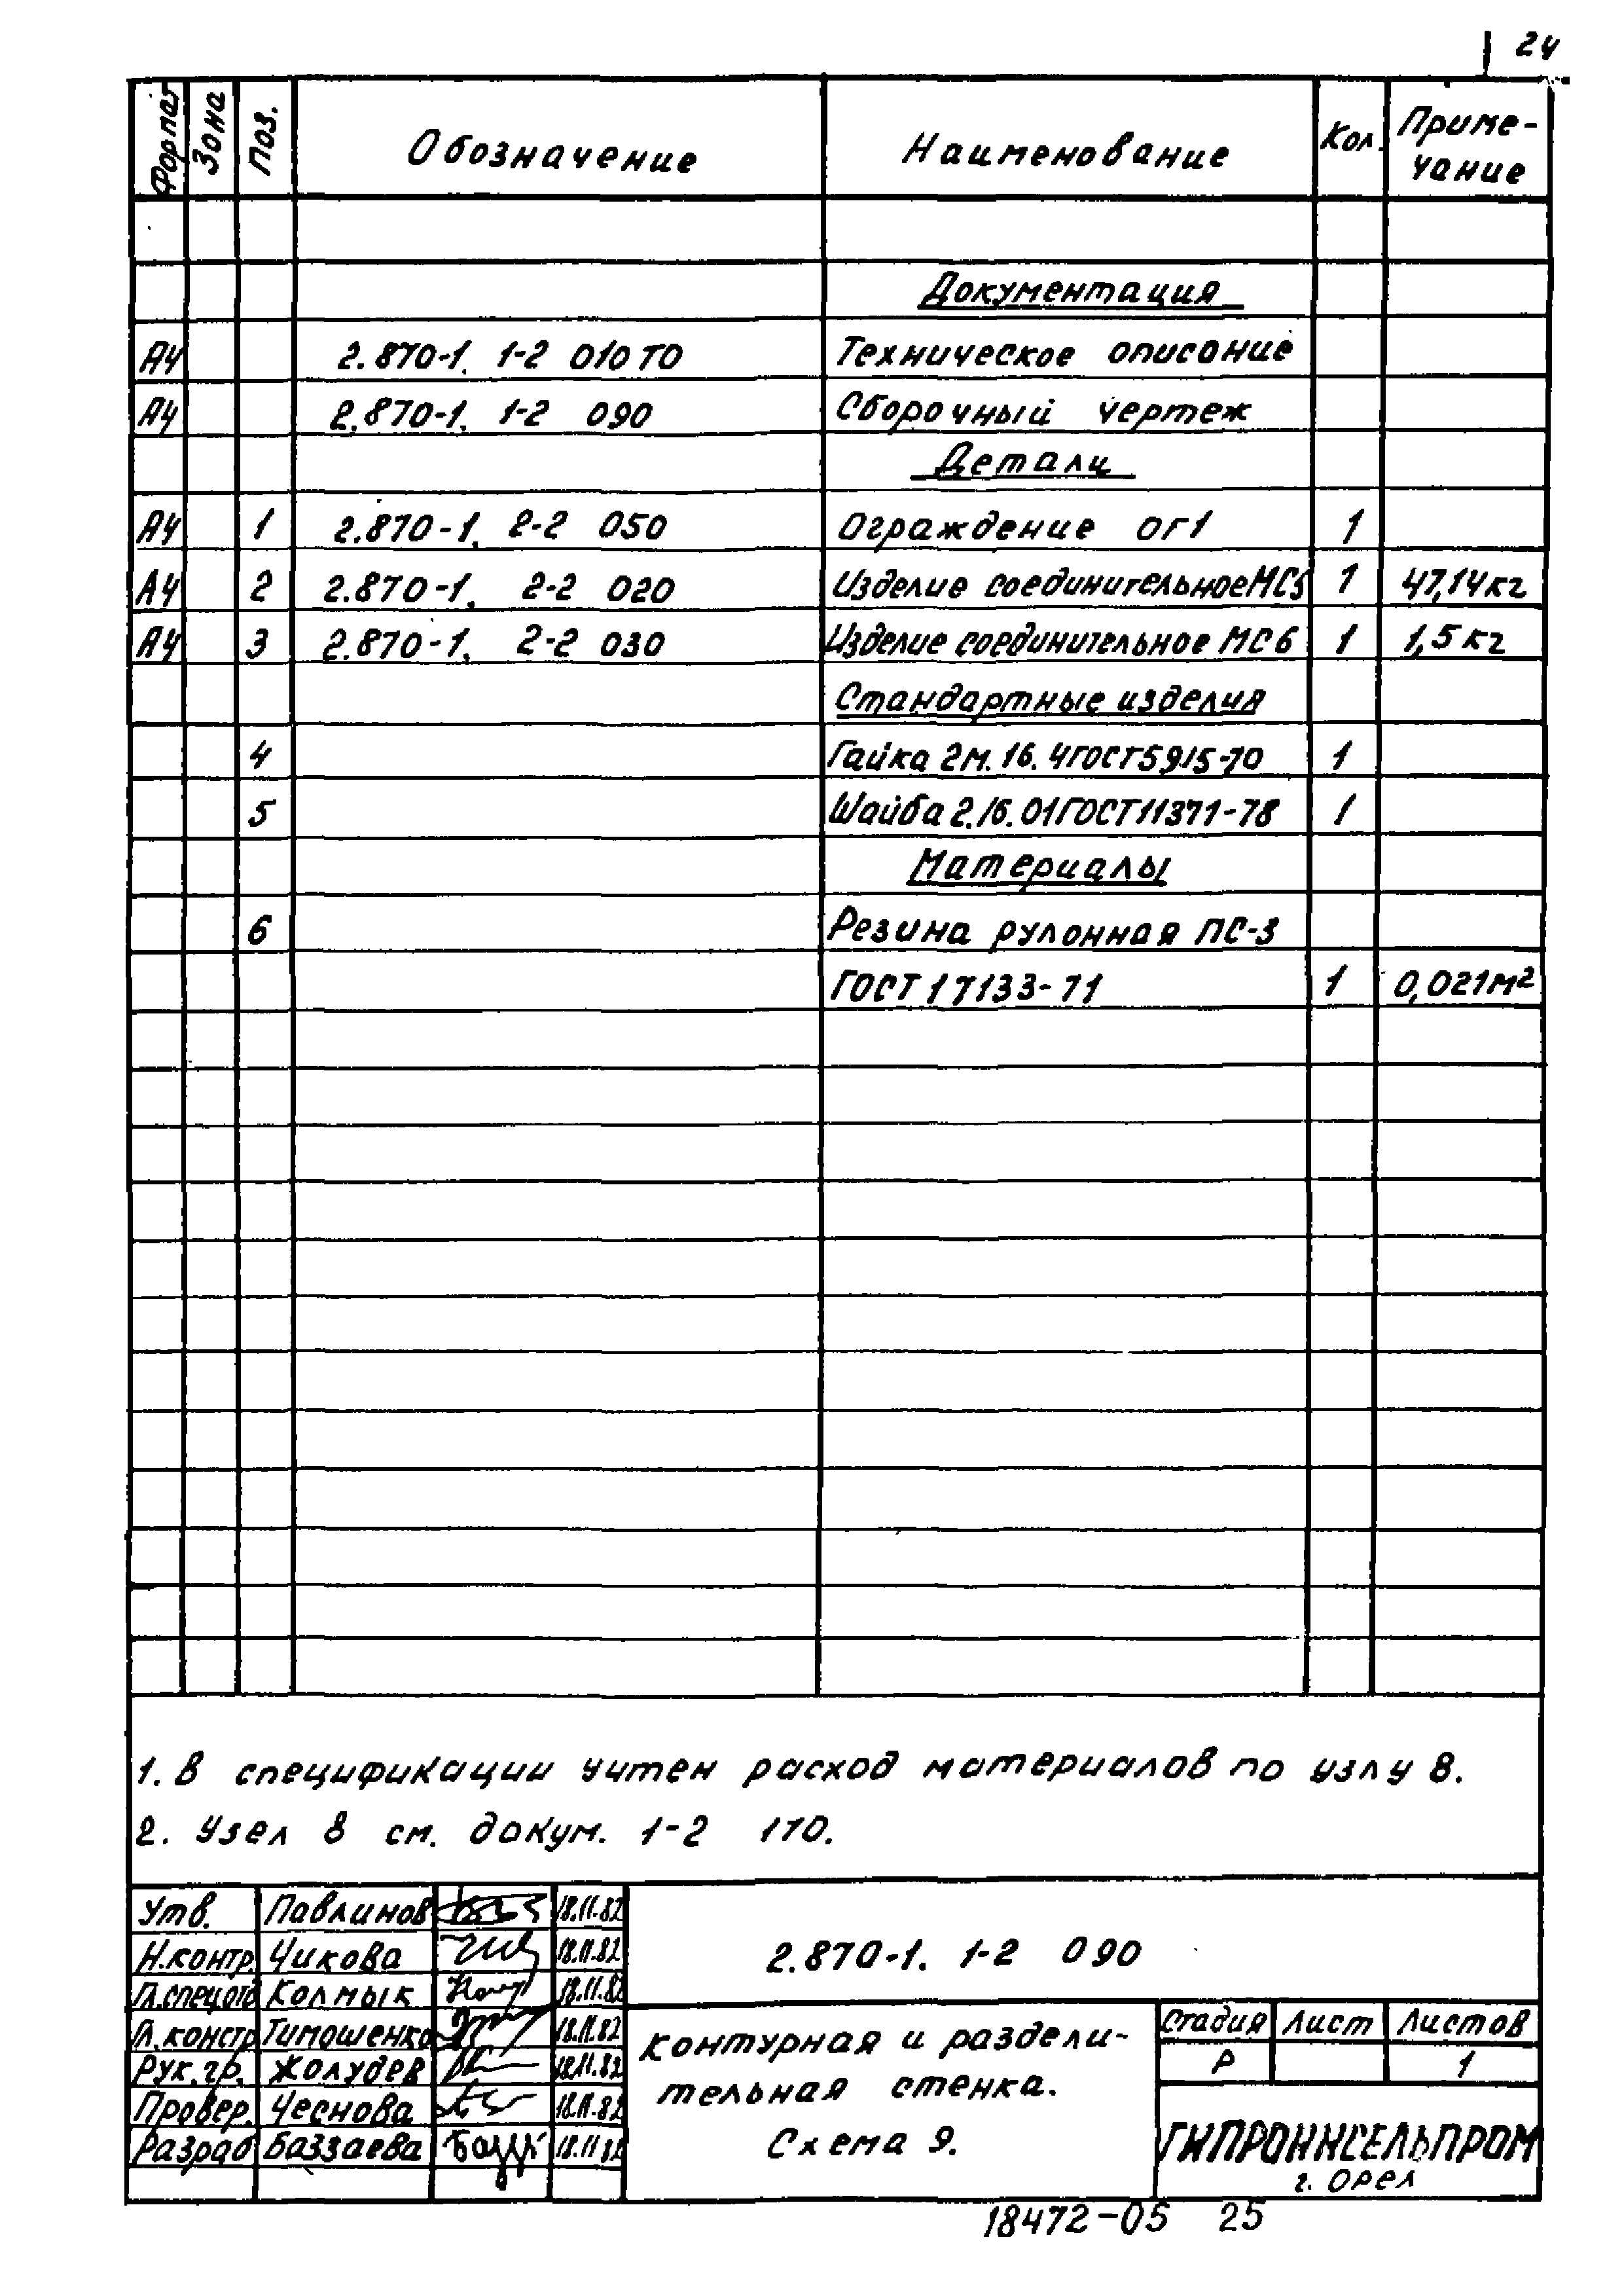 24
Формат Зона Поз. Обозначение Наименование Кол. Приме-
чание
Документация
А4 2.870-1. 1-2 010 ТО Техническое описание
А4 2.870-1. 1-2 090 Сборочный чертеж
Детали
А4 1 2.870-1. 2-2 050 Ограждение ОГ1 1
А4 2 2.870-1. 2-2 020 Изделие соединительное МС5 1 47,14кг
А4 3 2.870-1. 2-2 030 Изделие соединительное МС6 1 1,5 кг
Стандартные изделия
4 Гайка 2М.16.4 ГОСТ 5915-70 1
5 Шайба 2.16.01 ГОСТ 11371-78 1
Материалы
6 Резина рулонная ПС-3
ГОСТ 17133-71 1 0,021м²
1. В спецификации учтен расход материалов по узлу 8.
2. Узел 8 см. докум. 1-2 110.
Утв. Павлинов 18.11.82
Н.контр. Чикова 18.11.82
Гл.спец.отд Колмык 18.11.82
Гл.констр Тимошенко 18.11.82
Рук.гр. Жолудев 18.11.82
Провер. Чеснова 18.11.82
Разраб Баззаева 18.11.82
2.870-1. 1-2 090
Контурная и раздели-
тельная стенка.
Схема 9.
Стадия Лист Листов
Р 1
ГИПРОНИСЕЛЬПРОМ
г. Орел
18472-05 25